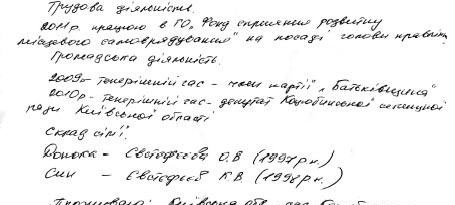 Трудова діяльність.
2011р. працюю в ГО „Фонд сприяння розвитку
місцевого самоврядування" на посаді голови правлін
Громадська діяльність.
2009р- теперішній час - член партії „Батьківщина"
2010р.- теперішній час- депутат Коцюбинської селищної
ради Київської області
Склад сім'ї:
Донька - О.В (1997р.н.)
Син - К.В. (1998р.н.)
Проживаю: Київська обл.